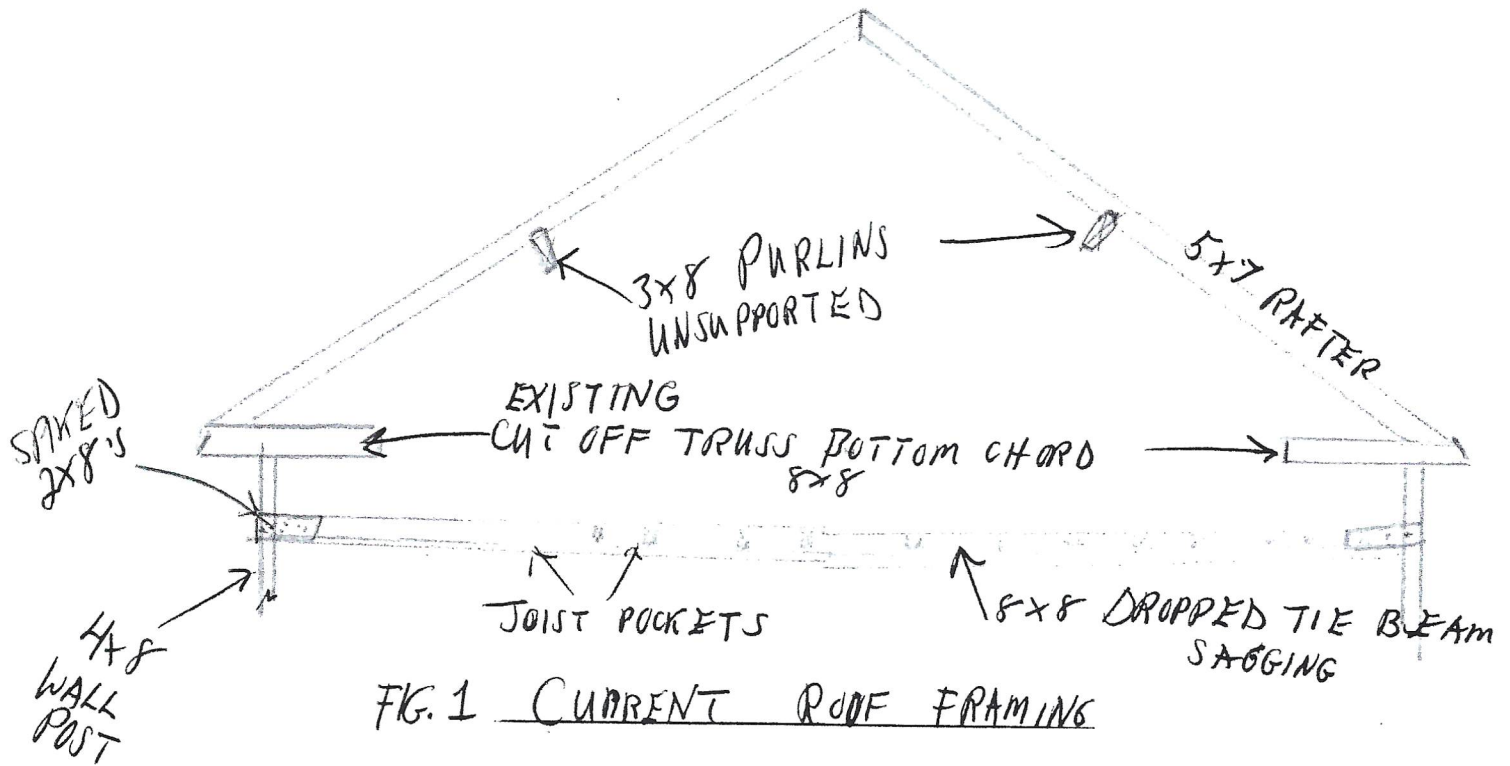 3x8 PURLINS
UNSUPPORTED
5x7 RAFTER
EXISTING
CUT OFF TRUSS BOTTOM CHORD
8x8
SPIKED
2x8's
JOIST POCKETS
8x8 DROPPED TIE BEAM
SAGGING
4x8
WALL
POST
FIG. 1 CURRENT ROOF FRAMING